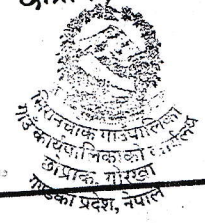 सिरानचोक गाउँपालिका
गाउँ कार्यपालिकाको कार्यालय
छोप्राक, गोरखा
गण्डकी प्रदेश, नेपाल